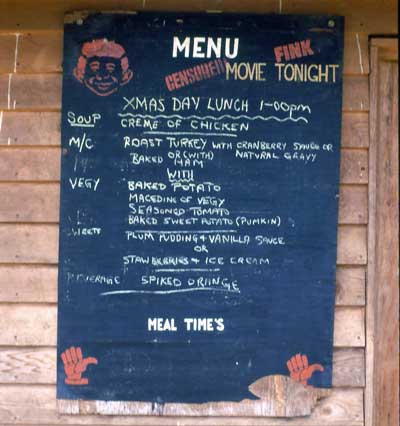 MENU
FINK
CENSORED
MOVIE TONIGHT
XMAS DAY LUNCH 1-00pm
SOUP CREME OF CHICKEN
M/C ROAST TURKEY WITH CRANBERRY SAUCE OR
BAKED OR (WITH) NATURAL GRAVY
HAM
WITH
VEGY BAKED POTATO
MACEDINE OF VEGY
SEASONED TOMATO
BAKED SWEET POTATO (PUMKIN)
SWEETS PLUM PUDDING & VANILLA SAUCE
OR
STAWBERRIES & ICE CREAM
BEVERAGE SPIKED ORANGE
MEAL TIME'S